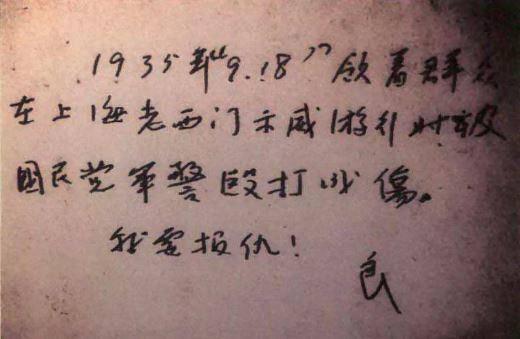 1935年“9.18”领着群众
在上海老西门示威游行时被
国民党军警殴打成伤。
我要报仇!
良